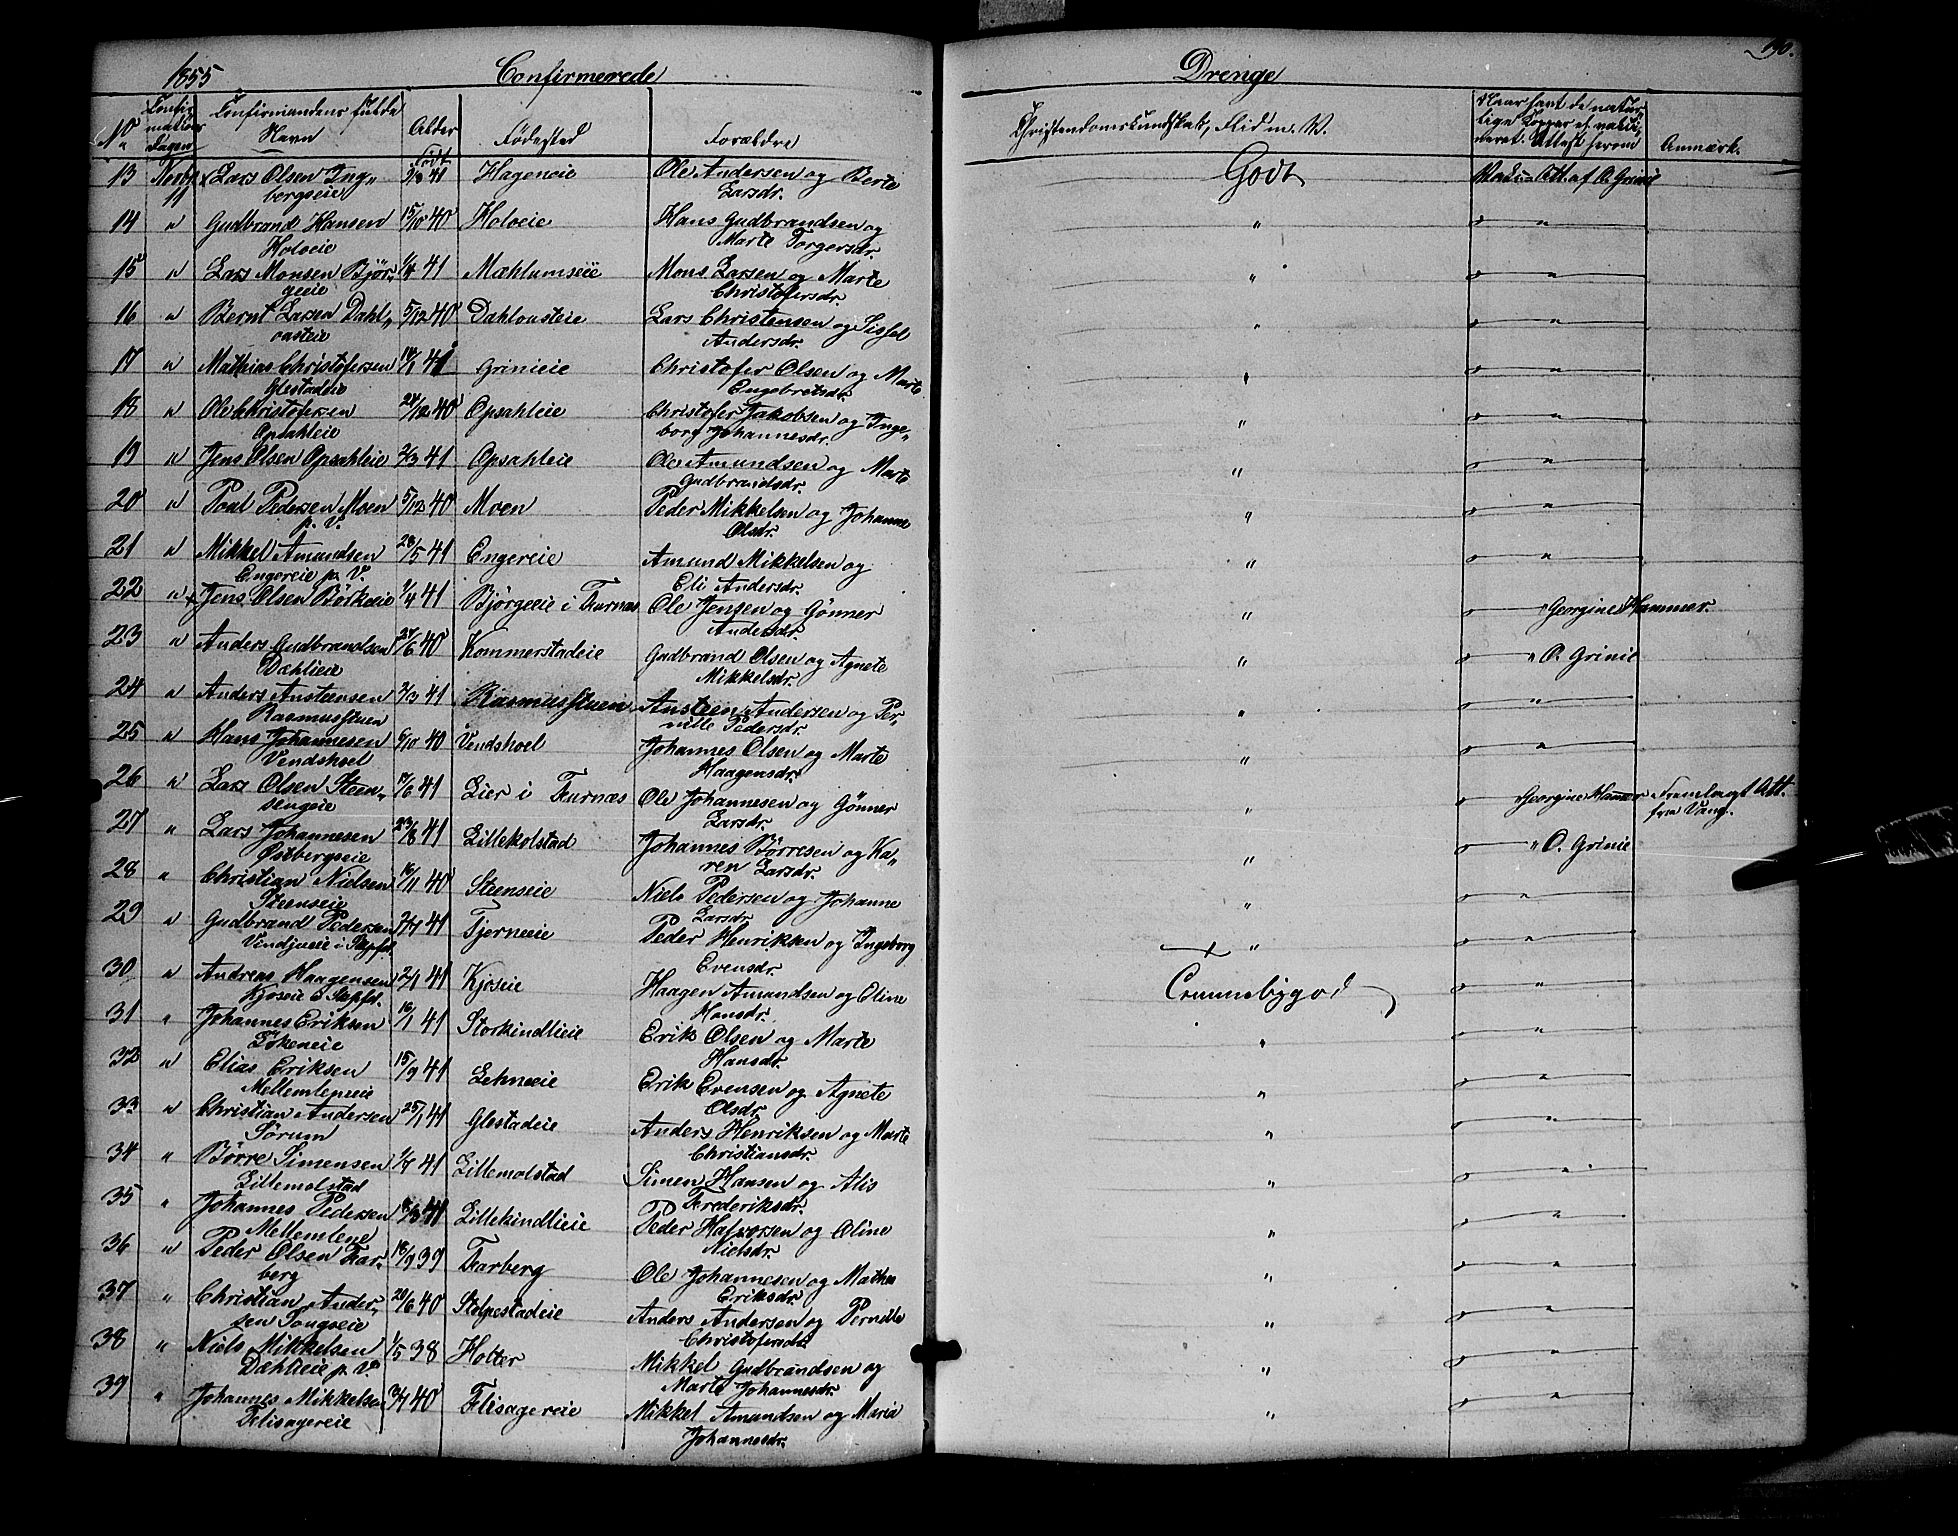 1855 Confirmerede Drenge 190.
No Confirmations Dagen Confirmandens fulde Navn Alder Født Fødested Forældre Christendomskundskab, Flid m. V. Naar havt de naturlige Kopper el. vaccineret. Attest herom Anmærk.
13 Lars Olsen Ingbergseie 41 Hageneie Ole Andersen og Berte Larsdr. Godt Att. af O. Grinie
14 " Gudbrand Hansen Holoeie 15/10 40 Holoeie Hans Gudbrandsen og Marte Torgersdr. " "
15 " Lars Monsen Bjørgeeie 41 Mæhlumseie Mons Larsen og Marte Christofersdr. " "
16 " Bernt Larsen Dahloasteie 5/12 40 Dahlousteie Lars Christensen og Sissel Andersdr. " "
17 " Mathias Christofersen Glestadeie 41 Grinieie Christofer Olsen og Marte Engebretsdr. " "
18 " Ole Christofersen Opsahleie 24/12 40 Opsahleie Christofer Jakobsen og Ingeborg Johannesdr. " "
19 " Jens Olsen Opsahleie 2/3 41 Opsahleie Ole Amundsen og Marte Gudbrandsdr. " "
20 " Poul Pedersen Moen p. V. 5/12 40 Moen Peder Mikkelsen og Johanne Olsdr. " "
21 " Mikkel Amundsen Engereie p. V. 28/5 41 Engereie Amund Mikkelsen og Eli Andersdr. " "
22 " Jens Olsen Børkeeie 1/4 41 Bjørgeeie i Furnæs Ole Jensen og Gønner Andersdr. " " Georgine Hammer.
23 " Anders Gudbrandsen Dæhlieie 24/6 40 Kommerstadeie Gudbrand Olsen og Agnete Mikkelsdr. " " O. Grinie
24 " Anders Austeensen Rasmusstuen 2/3 41 Rasmusstuen Austeen Andersen og Pernille Pedersdr. " "
25 " Hans Johannesen Vendshoel 6/10 40 Vendshoel Johannes Olsen og Marte Haagensdr. " "
26 " Lars Olsen Steensengeie 17/6 41 Lier i Furnæs Ole Johannesen og Gønner Larsdr. " Georgine Hammer Fremlagt Att. fra Vang.
27 " Lars Johannesen Østbergseie 23/8 41 Lillekolstad Johannes Børresen og Karen Larsdr. " " O. Grinie
28 " Christian Nielsen Steenseie 16/11 40 Steenseie Niels Pedersen og Johanne Larsdr. " "
29 " Gudbrand Pedersen 41 Tjerneeie Peder Henriksen og Ingeborg Evensdr. " "
30 " Andreas Haagensen Kjøseie 2/1 41 Kjøseie Haagen Amundsen og Eline Hansdr. "
31 " Johannes Eriksen Løkeneie 16/1 41 Storkindlieie Erik Olsen og Marte Hansdr. " "
32 " Elias Eriksen 15/9 41 Lehneeie Erik Evensen og Agnete Olsdr. " "
33 " Christian Andersen Sørum 25/1 41 Glestadeie Anders Henriksen og Marte Christiansdr. " "
34 " Børre Simensen Lillemolstad 1/7 41 Lillemolstad Simen Hansen og Alis Frederiksdr. " "
35 " Johannes Pedersen Mellemlene 41 Lillekindlieie Peder Halvorsen og Oline Nielsdr. " "
36 " Peder Olsen Farberg 18/9 39 Farberg Ole Johannesen og Mathea Eriksdr. " "
37 " Christian Andersen 20/6 40 Stolpestadeie Anders Andersen og Pernille Christofersdr. " "
38 " Niels Mikkelsen Dahleie p. V. 1/5 38 Holter Mikkel Gudbrandsen og Marte Johannesdr. " "
39 " Johannes Mikkelsen Flisagereie 40 Flisagereie Mikkel Amundsen og Maria Johannesdr. " "